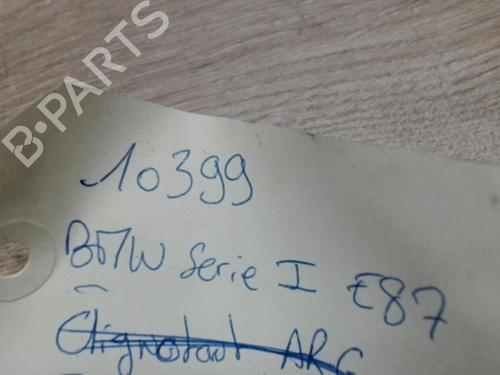 B-PARTS
10399
BMW Serie I E87
Clignotant ARG